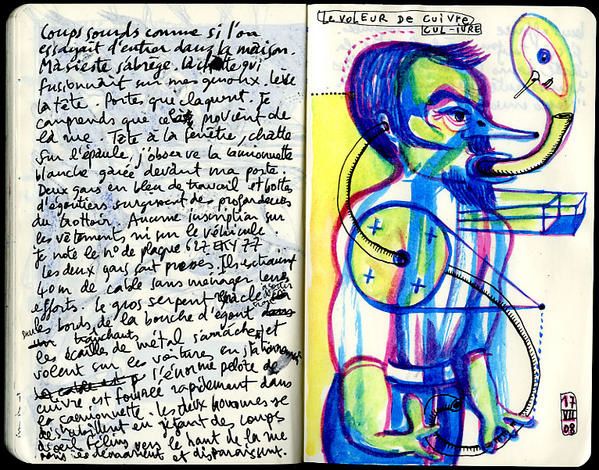 Coups sourds comme si l'on
essayait d'entrer dans la maison.
Ma sieste s'abrège. La chatte qui
fusionnait sur mes genoux, lève
la tête. Portes que claquent. Je
comprends que cela provient de
la rue. Tête à la fenêtre, chatte
sur l'épaule, j'observe la camionnette
blanche garée devant ma porte.
Deux gars en bleu de travail et bottes
d'égoutiers surgissent des profondeurs
du trottoir. Aucune inscription sur
les vêtements ni sur le véhicule
je note le n° de plaque 627 77
les deux gars sont pressés. Ils extraient
40m de cable sans ménager leurs
efforts. Le gros serpent racle
les bords de la bouche d'égout
tranchants
les écailles de métal s'arrachent et
volent sur les voitures en
s'énorme pelote de
cuivre est fourrée rapidement dans
la camionnette. les deux hommes se
en jetant des coups
vers le haut de la rue
ils démarrent et disparaissent.
Le voLEUR DE CUIVRE
CUL-IVRE
17
VII
08